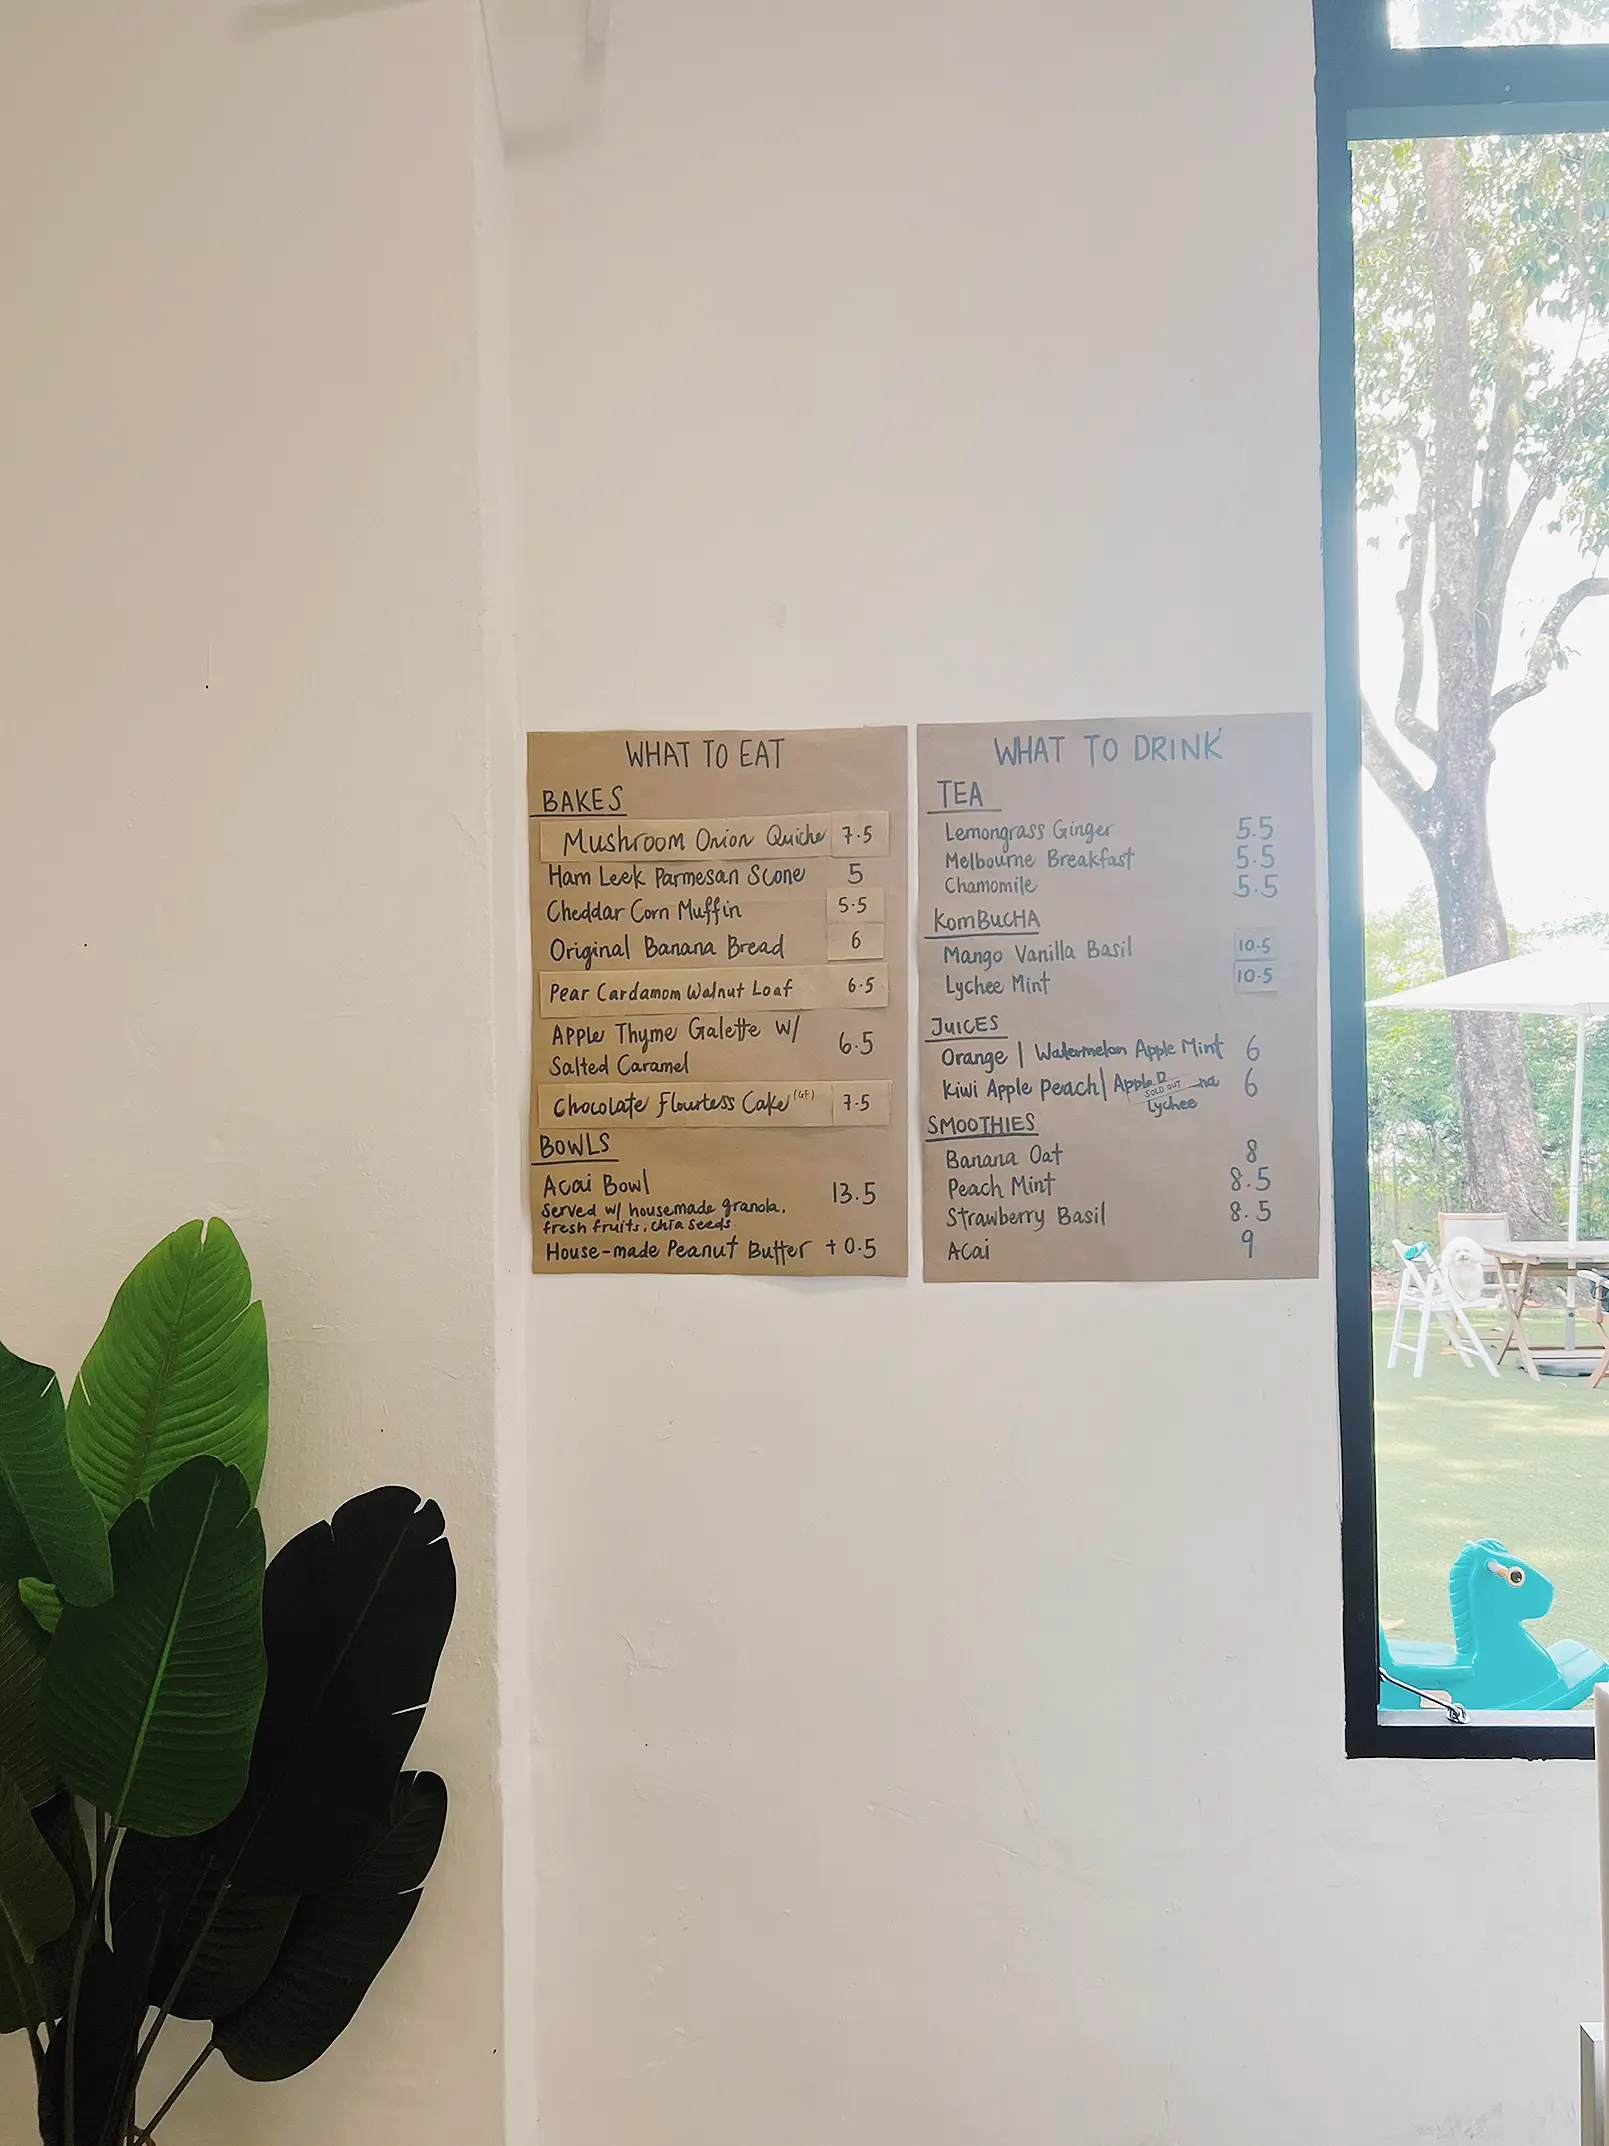 WHAT TO EAT
BAKES
Mushroom Onion Quiche 7.5
Ham Leek Parmesan Scone 5
Cheddar Corn Muffin 5.5
Original Banana Bread 6
Pear Cardamom Walnut Loaf 6.5
Apple Thyme Galette w/ 6.5
Salted Caramel
Chocolate Flourless Cake (GF) 7.5
BOWLS
Acai Bowl 13.5
Served w/ housemade granola,
fresh fruits, chia seeds.
House-made Peanut Butter +0.5
WHAT TO DRINK
TEA
Lemongrass Ginger 5.5
Melbourne Breakfast 5.5
Chamomile 5.5
KOMBUCHA
Mango Vanilla Basil 10.5
Lychee Mint 10.5
JUICES
Orange | Watermelon Apple Mint 6
Kiwi Apple Peach | Apple 6
SOLD OUT
Lychee
SMOOTHIES
Banana Oat 8
Peach Mint 8.5
Strawberry Basil 8.5
Acai 9